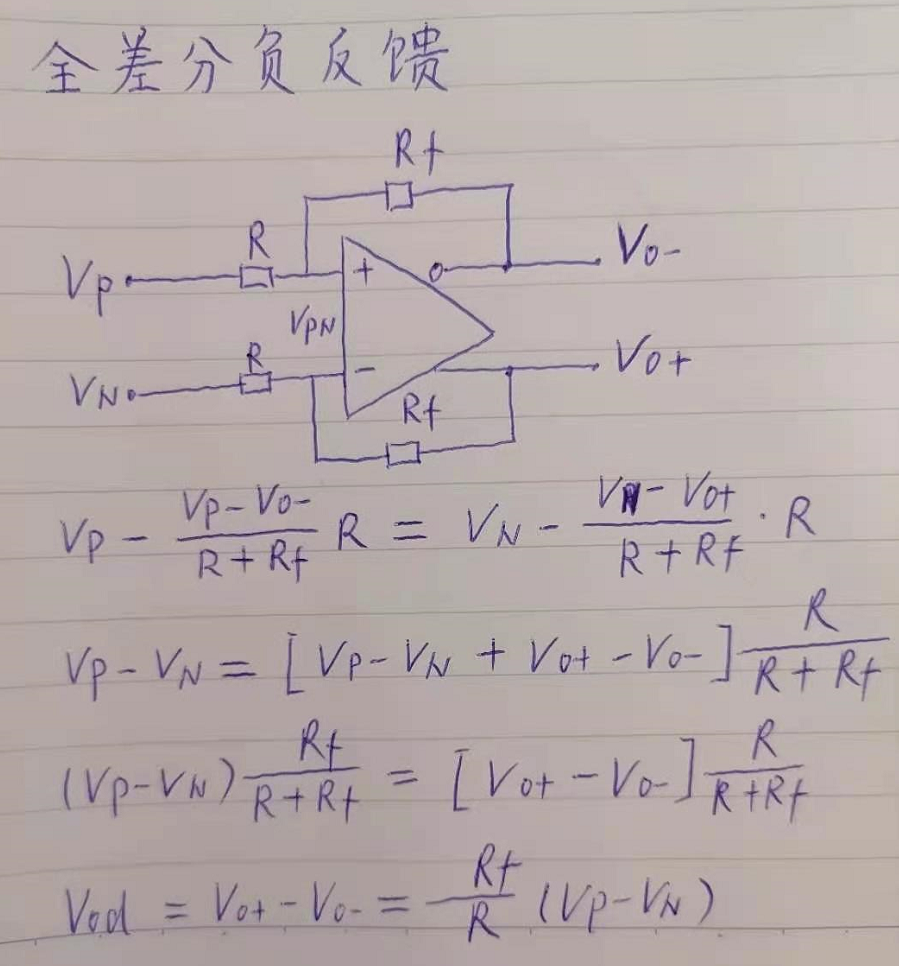 全差分负反馈
Rf
R
Vp
+
Vo-
VPN
R
VN
-
Vo+
Rf
Vp - \frac{Vp-Vo-}{R+Rf} R = VN - \frac{VN-Vo+}{R+Rf} · R
Vp-VN = [Vp-VN + Vo+ - Vo-] \frac{R}{R+Rf}
(Vp-VN) \frac{Rf}{R+Rf} = [Vo+ - Vo-] \frac{R}{R+Rf}
Vod = Vo+ - Vo- = \frac{Rf}{R} (Vp-VN)